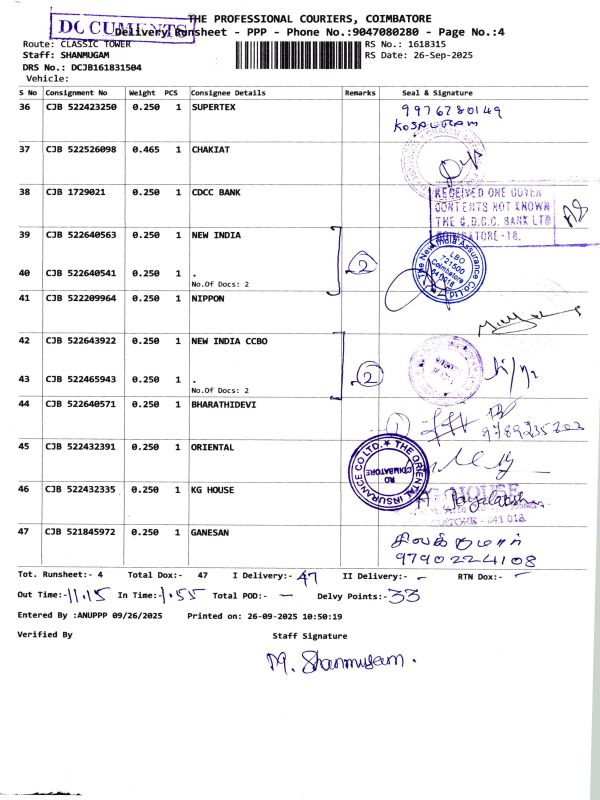 DOCUMENTS
THE PROFESSIONAL COURIERS, COIMBATORE
Delivery Runsheet - PPP - Phone No.:9047080280 - Page No.:4
Route: CLASSIC TOWER
RS No.: 1618315
Staff: SHANMUGAM
RS Date: 26-Sep-2025
DRS No.: DCJB161831504
Vehicle:
S No Consignment No Weight PCS Consignee Details Remarks Seal & Signature
36 CJB 522423250 0.250 1 SUPERTEX
9976780149
37 CJB 522526098 0.465 1 CHAKIAT
38 CJB 1729021 0.250 1 CDCC BANK
RECEIVED ONE COVER
CONTENTS NOT KNOWN
THE C.D.C.C. BANK LTD
COIMBATORE-18.
39 CJB 522640563 0.250 1 NEW INDIA
2
The New India Assurance Co. Ltd.
LBO
721600
Coimbatore
641018
40 CJB 522640541 0.250 1 .
No.Of Docs: 2
41 CJB 522209964 0.250 1 NIPPON
42 CJB 522643922 0.250 1 NEW INDIA CCBO
2
43 CJB 522465943 0.250 1 .
No.Of Docs: 2
44 CJB 522640571 0.250 1 BHARATHIDEVI
1
9789235202
45 CJB 522432391 0.250 1 ORIENTAL
THE ORIENTAL INSURANCE CO LTD.
RO
COIMBATORE
46 CJB 522432335 0.250 1 KG HOUSE
KG HOUSE
47 CJB 521845972 0.250 1 GANESAN
சிவக்குமார்
9790224108
Tot. Runsheet:- 4 Total Dox:- 47 I Delivery:- 47 II Delivery:- - RTN Dox:- -
Out Time:- 11.15 In Time:- 1.55 Total POD:- - Delvy Points:- 33
Entered By :ANUPPP 09/26/2025 Printed on: 26-09-2025 10:50:19
Verified By Staff Signature
M. Shanmugam.